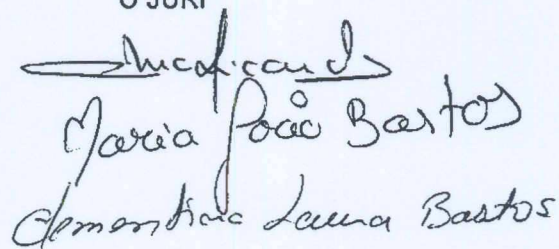 O JÚRI
Maria João Bastos
Clementina Laura Bastos